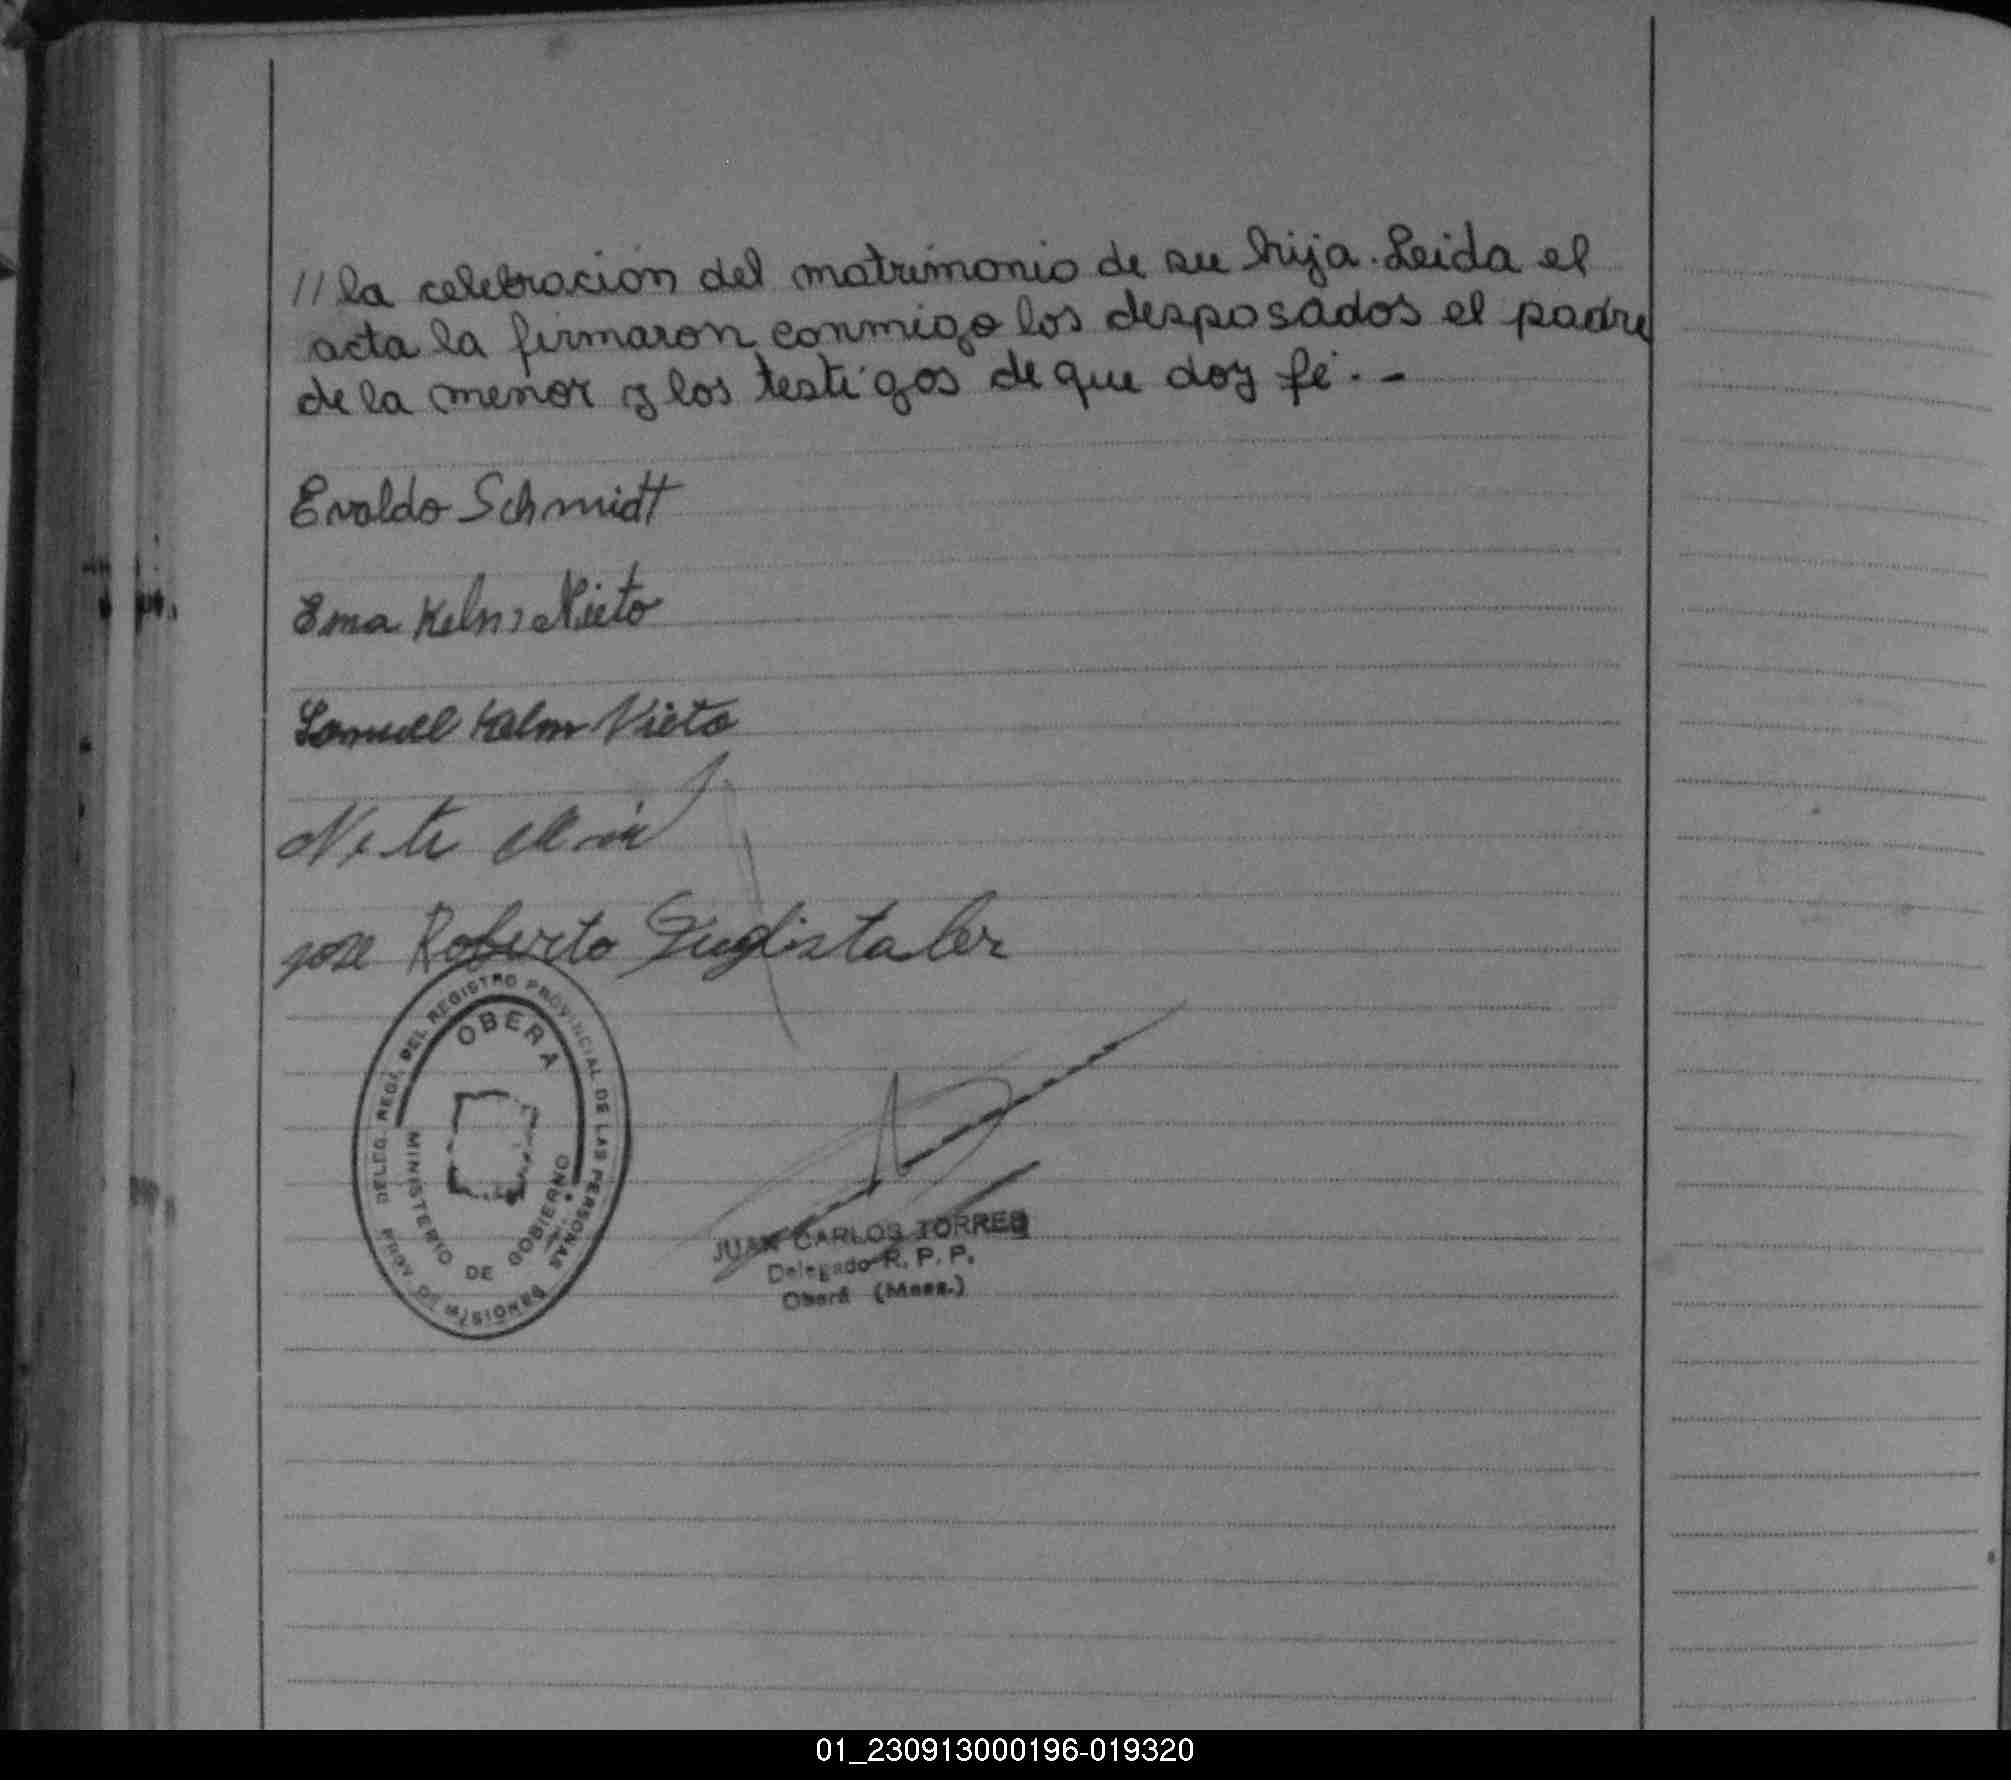 //la celebración del matrimonio de su hija. Leida el
acta la firmaron conmigo los desposados el padre
de la menor y los testigos de que doy fé. -
Evaldo Schmidt
Ema Kelm Nieto
Samuel Kelm Nieto
jose Roberto
DELEG. REGI. DEL REGISTRO PROVINCIAL DE LAS PERSONAS
OBERA
MINISTERIO DE GOBIERNO
PROV. DE MISIONES
JUAN CARLOS TORRES
Delegado R. P. P.
Oberá (Mnes.)
01_230913000196-019320